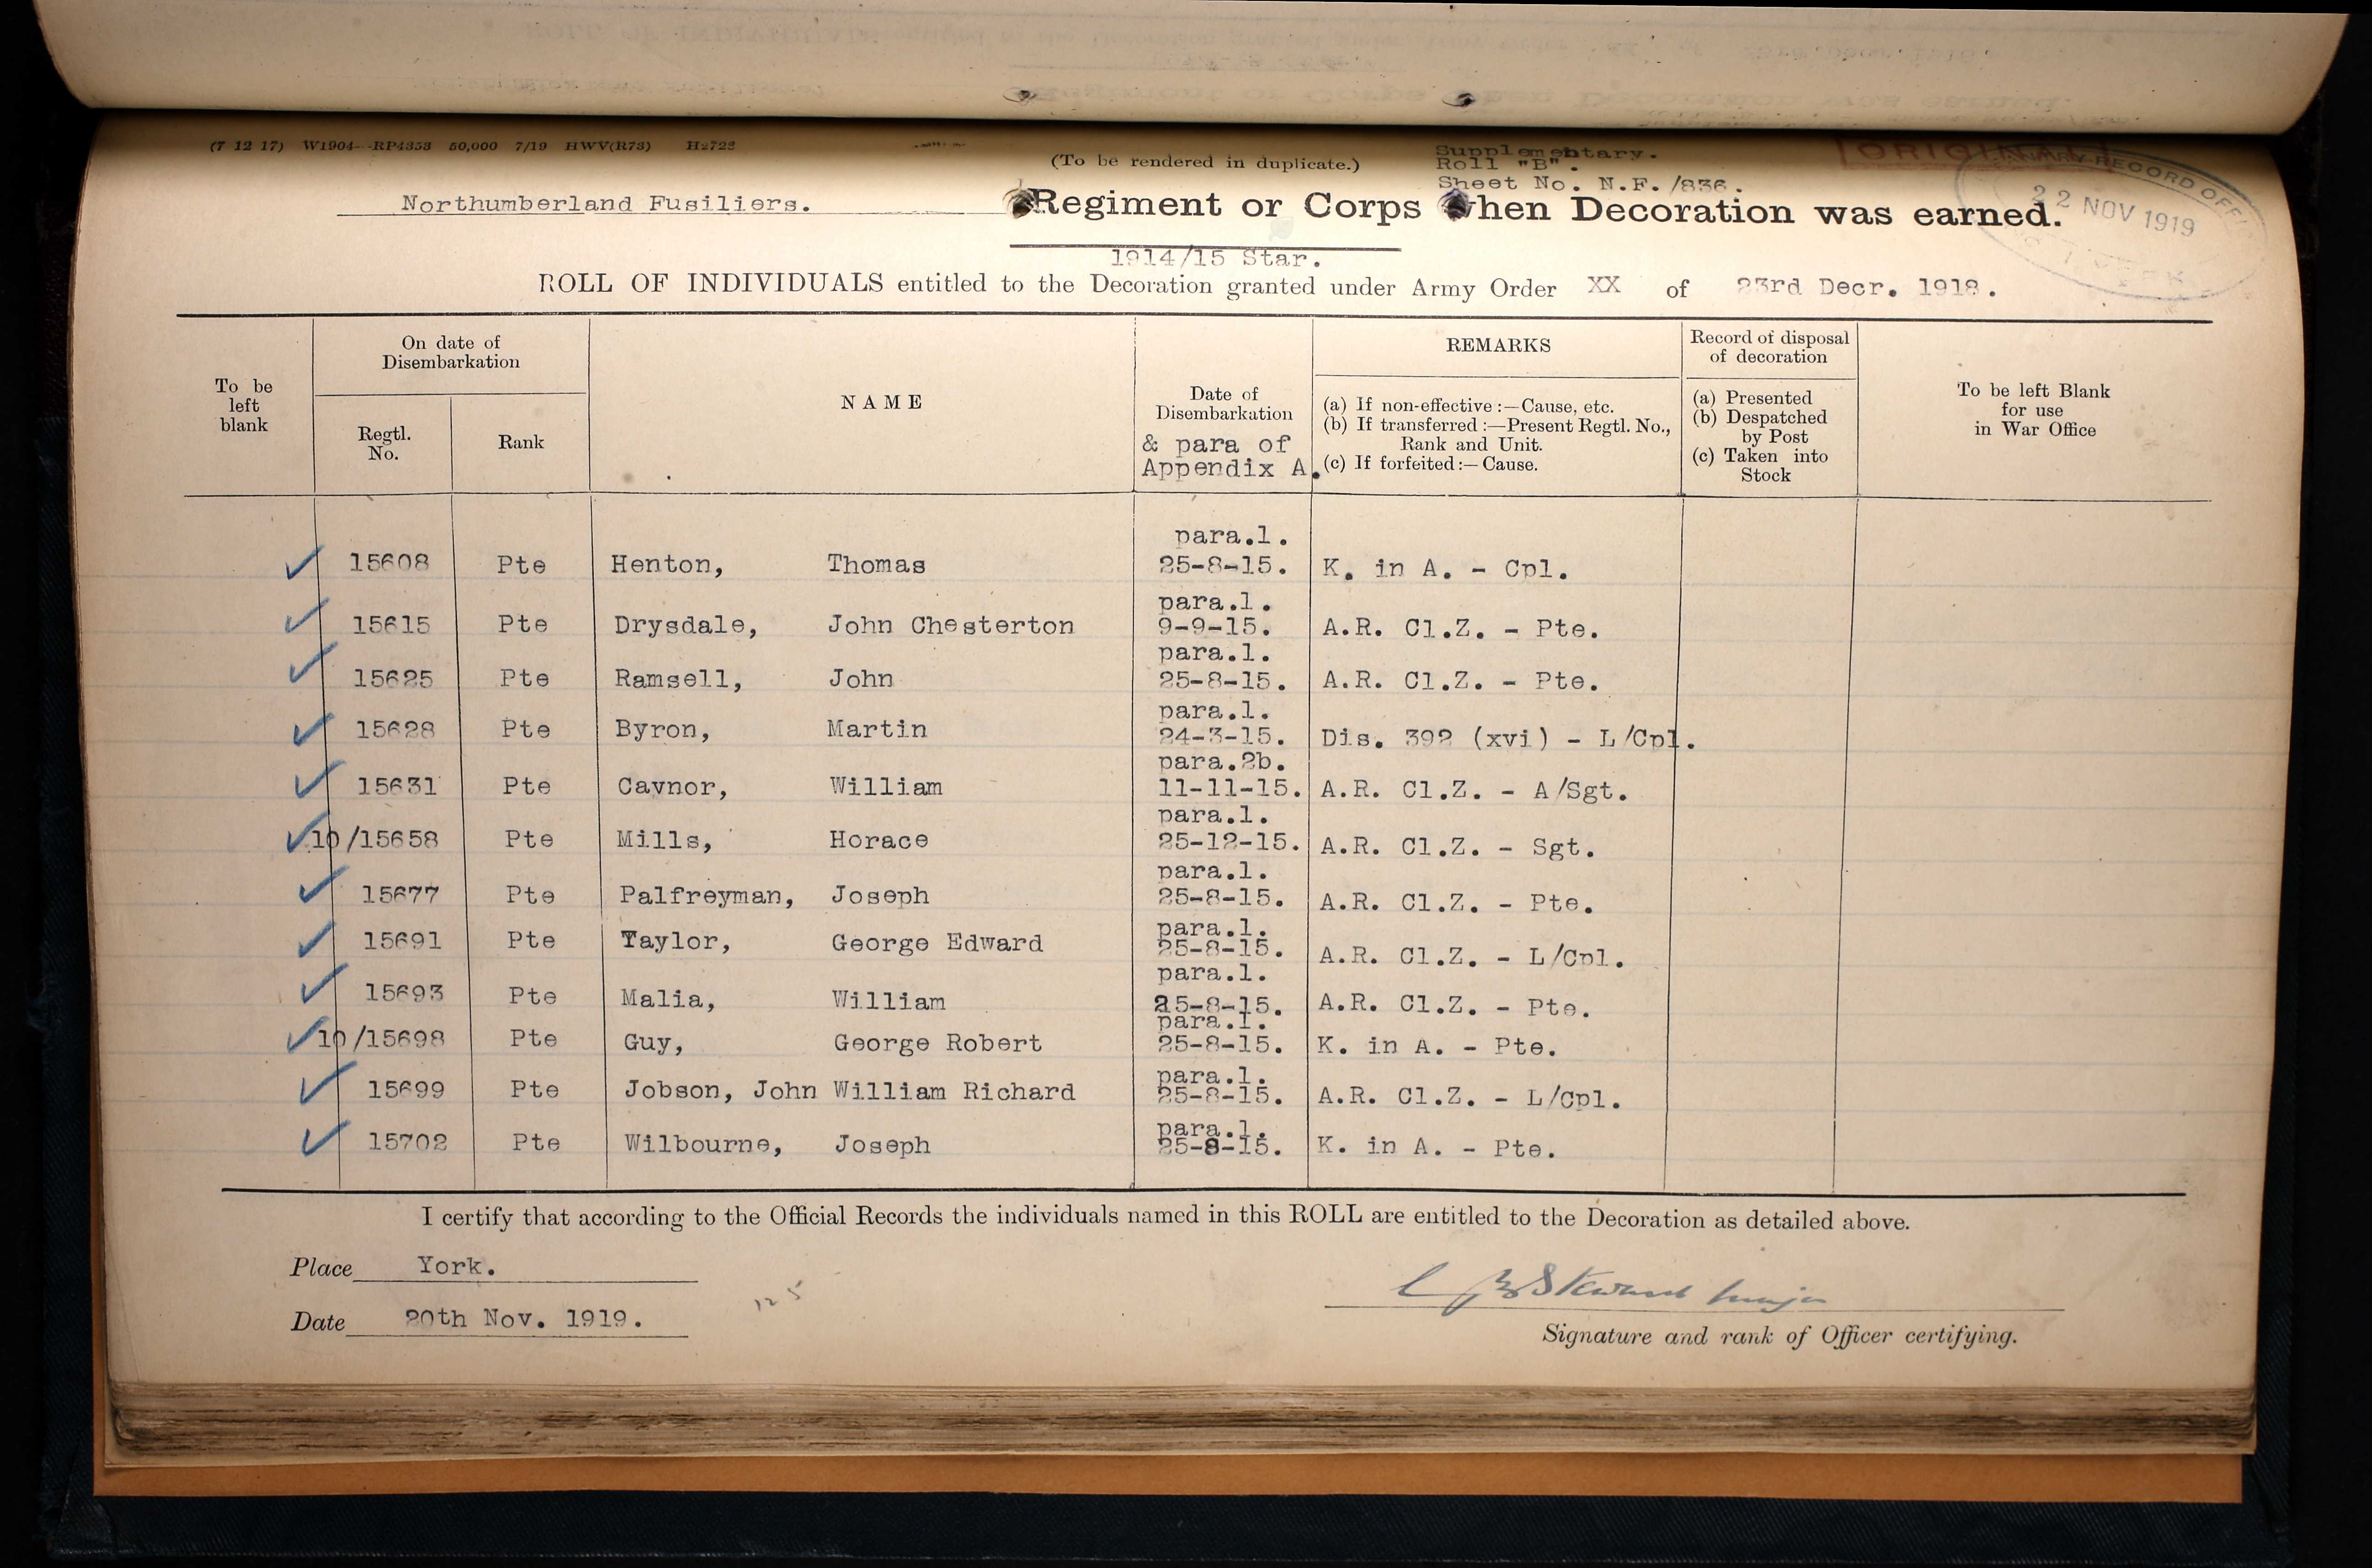 (7 12 17) W1904—RP4353 50,000 7/19 HWV(R73) H2723
(To be rendered in duplicate.)
Supplementary.
Roll "B".
Sheet No. N.F./836.
ORIGINAL
RECORD OFFICE
22 NOV 1919
YORK
Northumberland Fusiliers. Regiment or Corps when Decoration was earned.
1914/15 Star.
ROLL OF INDIVIDUALS entitled to the Decoration granted under Army Order XX of 23rd Decr. 1918.
To be left blank
On date of Disembarkation
Regtl. No.
Rank
NAME
Date of Disembarkation
& para of Appendix A.
REMARKS
(a) If non-effective:—Cause, etc.
(b) If transferred:—Present Regtl. No., Rank and Unit.
(c) If forfeited:—Cause.
Record of disposal of decoration
(a) Presented
(b) Despatched by Post
(c) Taken into Stock
To be left Blank for use in War Office
para.1.
15608 Pte Henton, Thomas 25-8-15. K. in A. - Cpl.
para.1.
15615 Pte Drysdale, John Chesterton 9-9-15. A.R. Cl.Z. - Pte.
para.1.
15625 Pte Ramsell, John 25-8-15. A.R. Cl.Z. - Pte.
para.1.
15628 Pte Byron, Martin 24-3-15. Dis. 392 (xvi) - L/Cpl.
para.2b.
15631 Pte Cavnor, William 11-11-15. A.R. Cl.Z. - A/Sgt.
para.1.
10/15658 Pte Mills, Horace 25-12-15. A.R. Cl.Z. - Sgt.
para.1.
15677 Pte Palfreyman, Joseph 25-8-15. A.R. Cl.Z. - Pte.
para.1.
15691 Pte Taylor, George Edward 25-8-15. A.R. Cl.Z. - L/Cpl.
para.1.
15693 Pte Malia, William 25-8-15. A.R. Cl.Z. - Pte.
para.1.
10/15698 Pte Guy, George Robert 25-8-15. K. in A. - Pte.
para.1.
15699 Pte Jobson, John William Richard 25-8-15. A.R. Cl.Z. - L/Cpl.
para.1.
15702 Pte Wilbourne, Joseph 25-8-15. K. in A. - Pte.
I certify that according to the Official Records the individuals named in this ROLL are entitled to the Decoration as detailed above.
Place York.
Date 20th Nov. 1919.
125
Major
Signature and rank of Officer certifying.